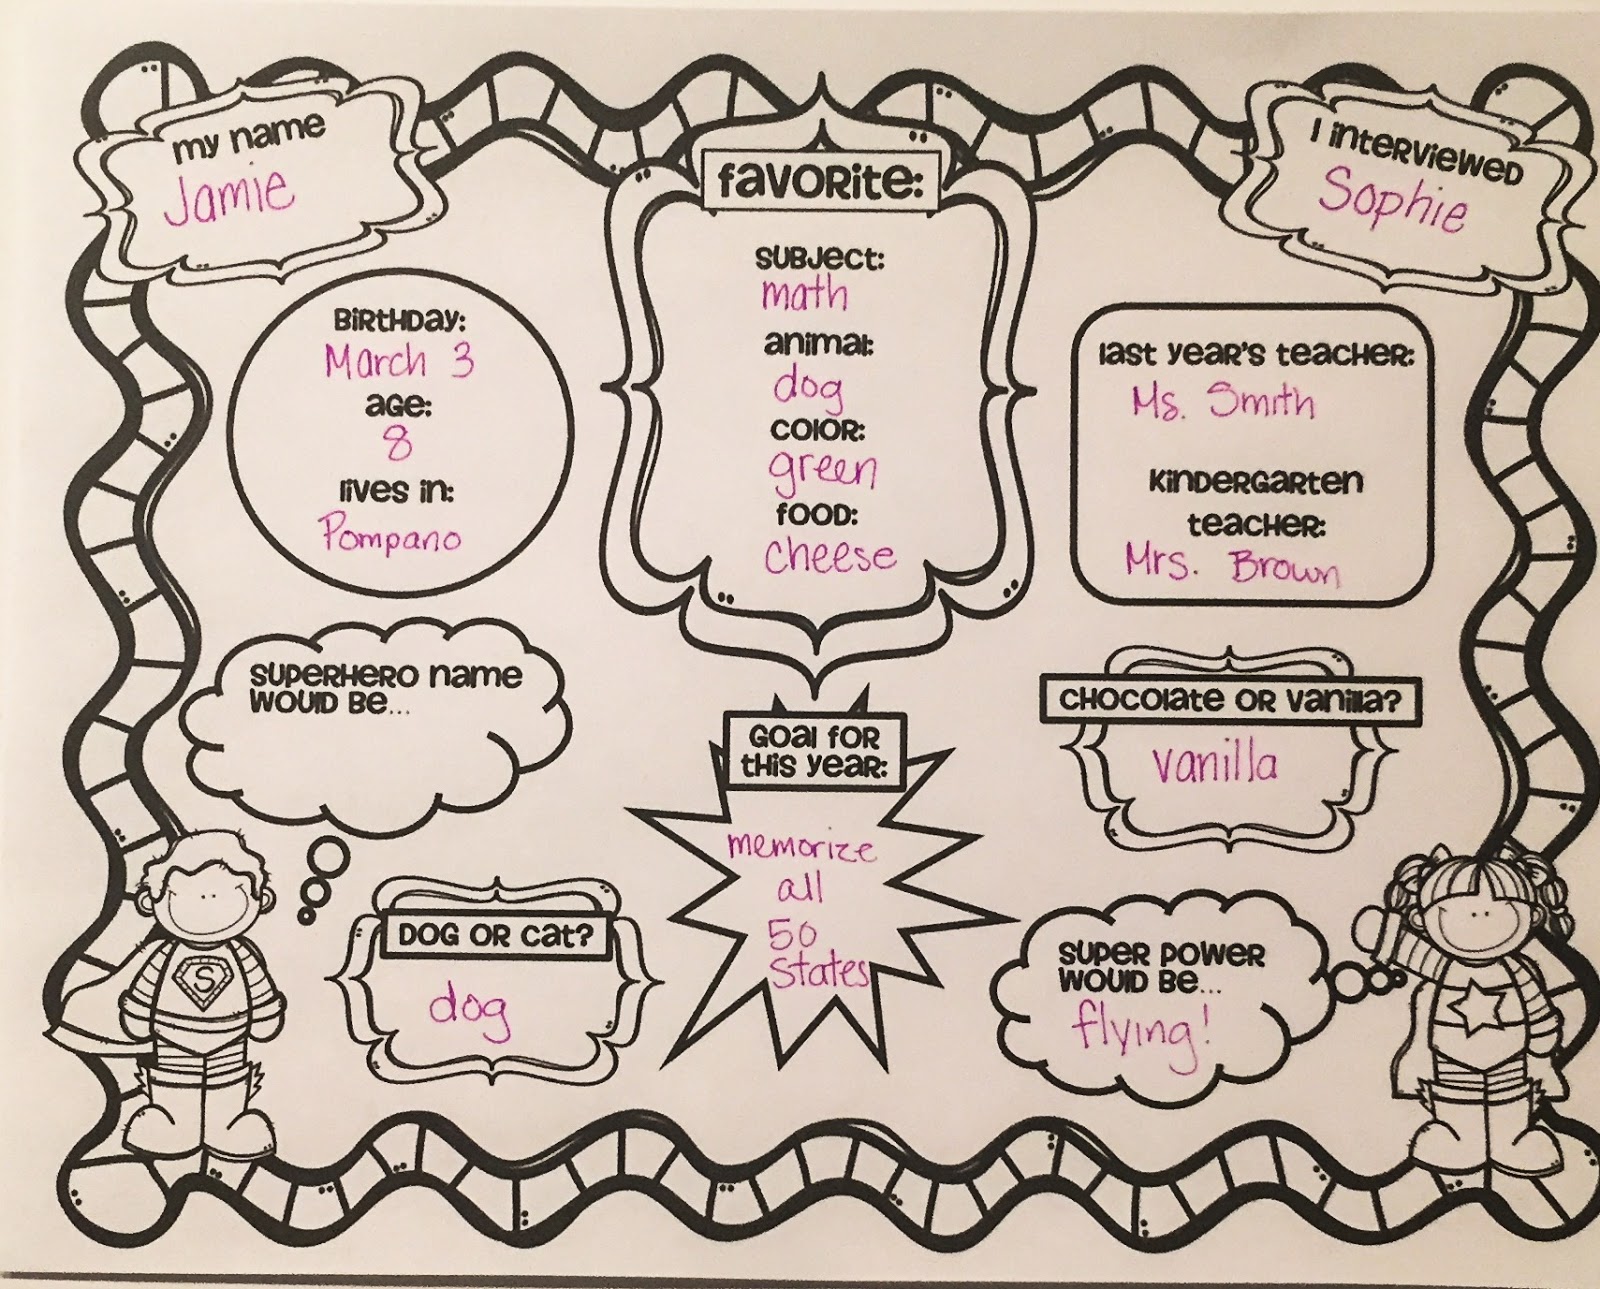 my name
Jamie
I interviewed
Sophie
Favorite:
Subject:
math
animal:
dog
color:
green
food:
cheese
Birthday:
March 3
age:
8
lives in:
Pompano
last year's teacher:
Ms. Smith
Kindergarten
teacher:
Mrs. Brown
Superhero name
would be...
Goal for
this year:
memorize
all
50
States
Chocolate or vanilla?
vanilla
Dog or cat?
dog
Super power
would be...
flying!
S